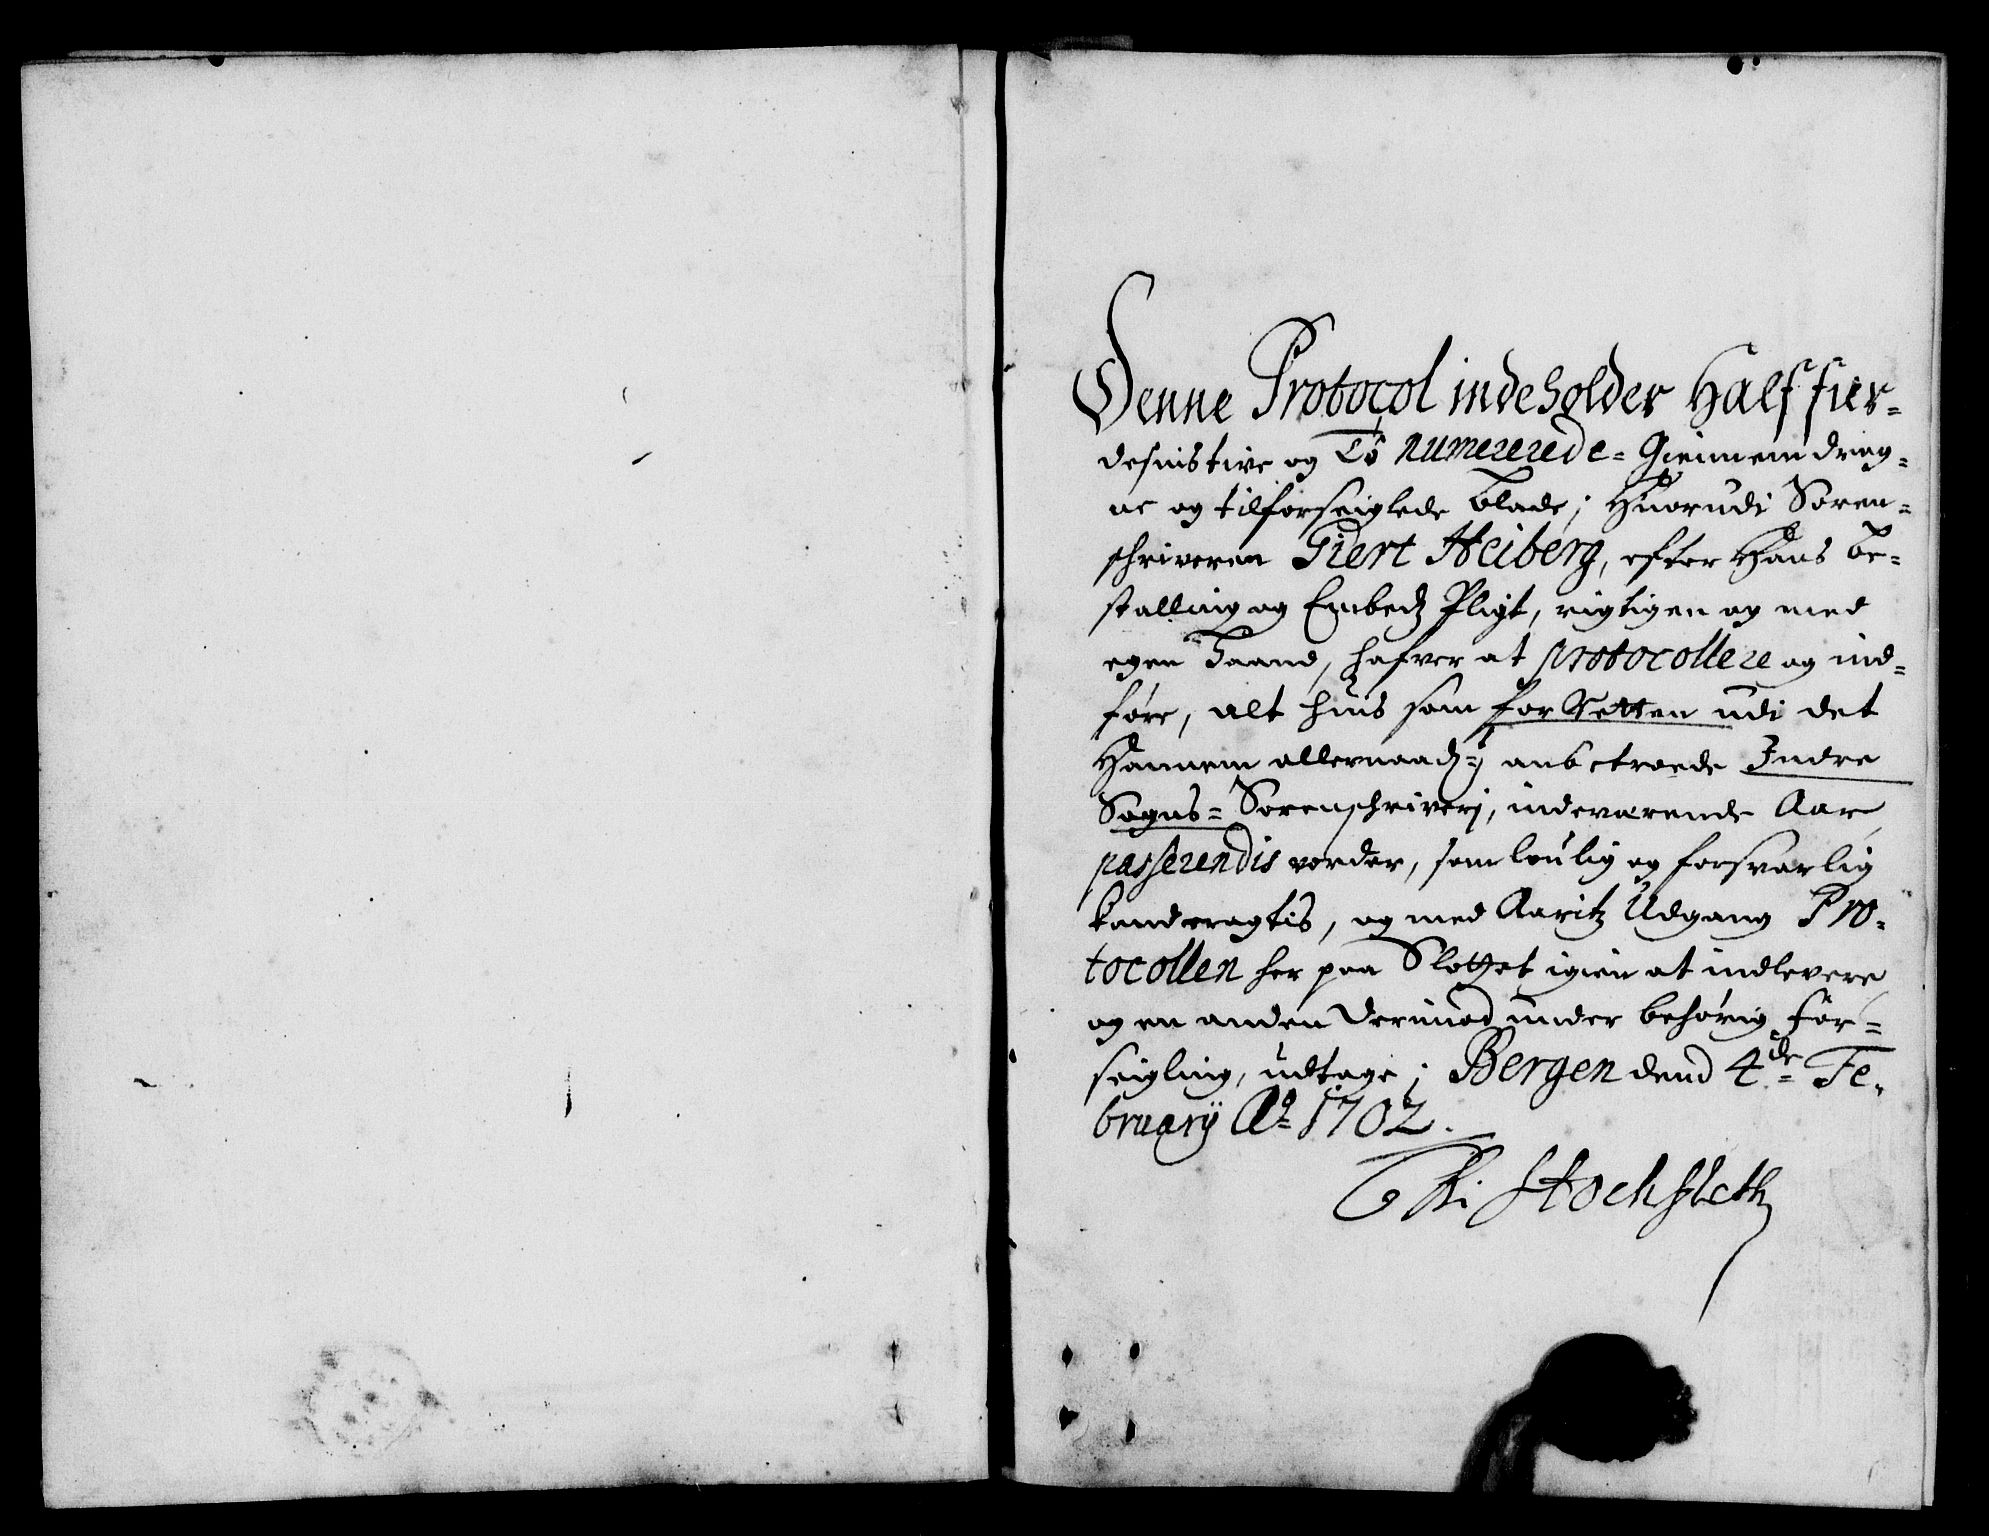 Denne Protocol indeholder Half fier-
desinstive og To numererede- Giennemdrag-
ne og tilforseiglede blade; Huorudi Soren-
schriveren Giert Heiberg, efter Hans be-
stalling og Embedz Pligt, rigtigen og med
egen Haand, hafver at protocollere og ind-
føre, alt huis som for Retten udi det
Hannem allernaad: anbetroede Indre
Sogns- Sorenschriverj, indeværende Aar
passerendis vorder, som loulig og forsvarlig
kand eragtis, og med Aaritz Udgang Pro-
tocollen her paa Slottet igien at indlevere
og en anden derimod under behørig For-
seigling, udtage; Bergen dend 4de Fe-
bruarij Ao 1702.
Chr: Stockfleth